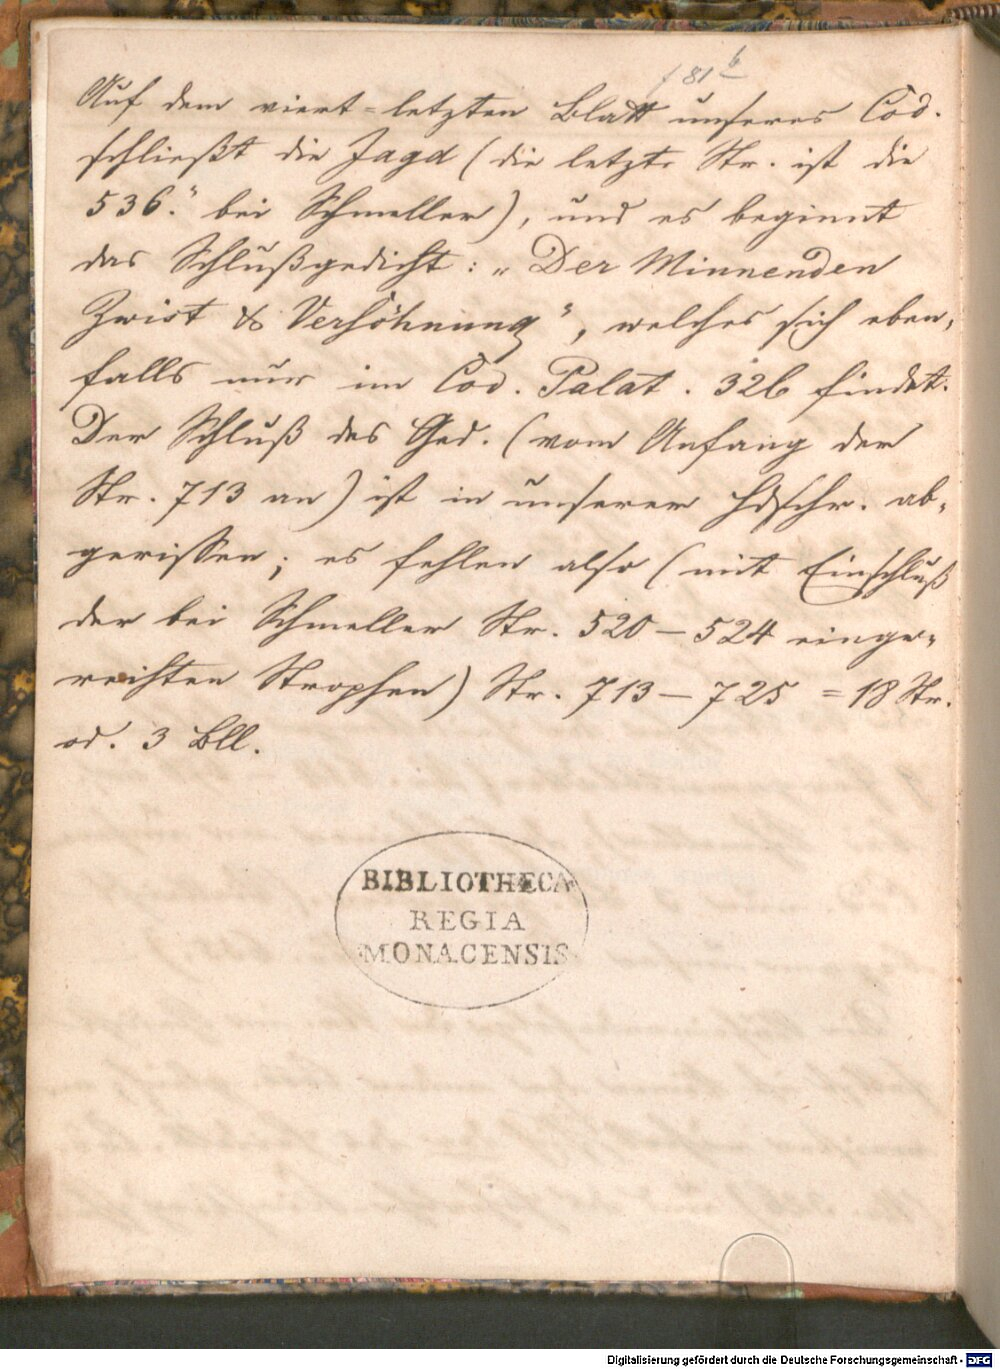 f 81 b
Auf dem viert-letzten Blatt unseres Cod.
schließt die Jagd (die letzte Str. ist die
536.te bei Schmeller), und es beginnt
das Schlußgedicht: „Der Minnenden
Zwist & Versöhnung“, welches sich eben-
falls nur im Cod. Palat. 326 findet.
Der Schluß des Ged. (vom Anfang der
Str. 713 an) ist in unserer Hdschr. ab-
gerissen; es fehlen also (mit Einschluß
der bei Schmeller Str. 520—524 einge-
reihten Strophen) Str. 713—725 = 18 Str.
od. 3 Bll.
BIBLIOTHECA
REGIA
MONACENSIS
Digitalisierung gefördert durch die Deutsche Forschungsgemeinschaft - DFG